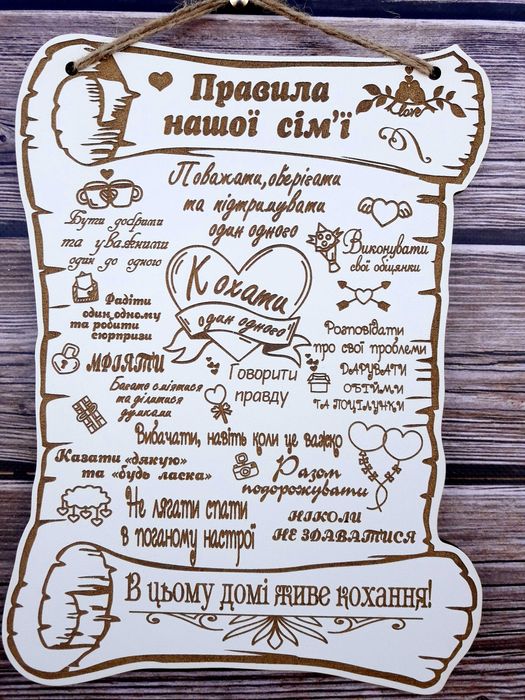 Правила
нашої сім'ї
Love
Поважати, оберігати
та підтримувати
один одного
Бути добрими
та уважними
один до одного
Виконувати
свої обіцянки
Кохати
один одного!
Радіти
один одному
та робити
сюрпризи
Розповідати
про свої проблеми
МРІЯТИ
Говорити
правду
ДАРУВАТИ
ОБІЙМИ
ТА ПОЦІЛУНКИ
Багато сміятися
та ділитися
думками
Вибачати, навіть коли це важко
Казати «дякую»
та «будь ласка»
Разом
подорожувати
Не лягати спати
в поганому настрої
НІКОЛИ
НЕ ЗДАВАТИСЯ
В цьому домі живе кохання!